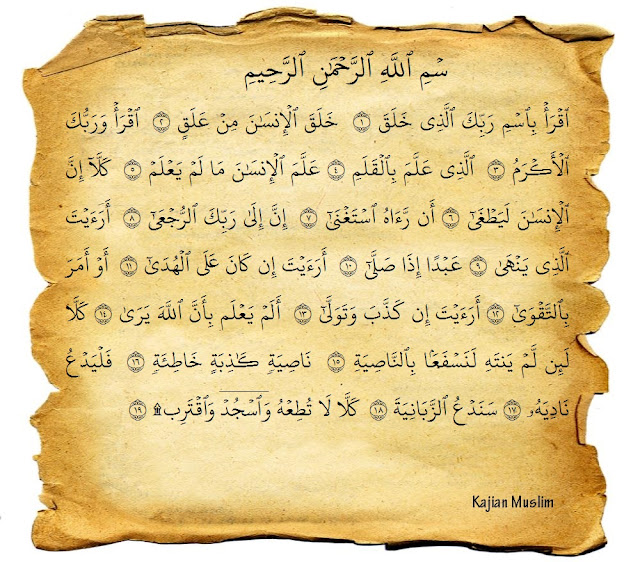 سْمِ ٱللَّهِ ٱلرَّحْمَٰنِ ٱلرَّحِيمِ
ٱقْرَأْ بِٱسْمِ رَبِّكَ ٱلَّذِى خَلَقَ ١ خَلَقَ ٱلْإِنسَٰنَ مِنْ عَلَقٍ ٢ ٱقْرَأْ وَرَبُّكَ
ٱلْأَكْرَمُ ٣ ٱلَّذِى عَلَّمَ بِٱلْقَلَمِ ٤ عَلَّمَ ٱلْإِنسَٰنَ مَا لَمْ يَعْلَمْ ٥ كَلَّآ إِنَّ
ٱلْإِنسَٰنَ لَيَطْغَىٰٓ ٦ أَن رَّءَاهُ ٱسْتَغْنَىٰٓ ٧ إِنَّ إِلَىٰ رَبِّكَ ٱلرُّجْعَىٰٓ ٨ أَرَءَيْتَ
ٱلَّذِى يَنْهَىٰ ٩ عَبْدًا إِذَا صَلَّىٰٓ ١٠ أَرَءَيْتَ إِن كَانَ عَلَى ٱلْهُدَىٰٓ ١١ أَوْ أَمَرَ
بِٱلتَّقْوَىٰٓ ١٢ أَرَءَيْتَ إِن كَذَّبَ وَتَوَلَّىٰٓ ١٣ أَلَمْ يَعْلَم بِأَنَّ ٱللَّهَ يَرَىٰ ١٤ كَلَّا
لَئِن لَّمْ يَنتَهِ لَنَسْفَعًۢا بِٱلنَّاصِيَةِ ١٥ نَاصِيَةٍ كَٰذِبَةٍ خَاطِئَةٍ ١٦ فَلْيَدْعُ
نَادِيَهُۥ ١٧ سَنَدْعُ ٱلزَّبَانِيَةَ ١٨ كَلَّا لَا تُطِعْهُ وَٱسْجُدْ وَٱقْتَرِب۩ ١٩
Kajian Muslim